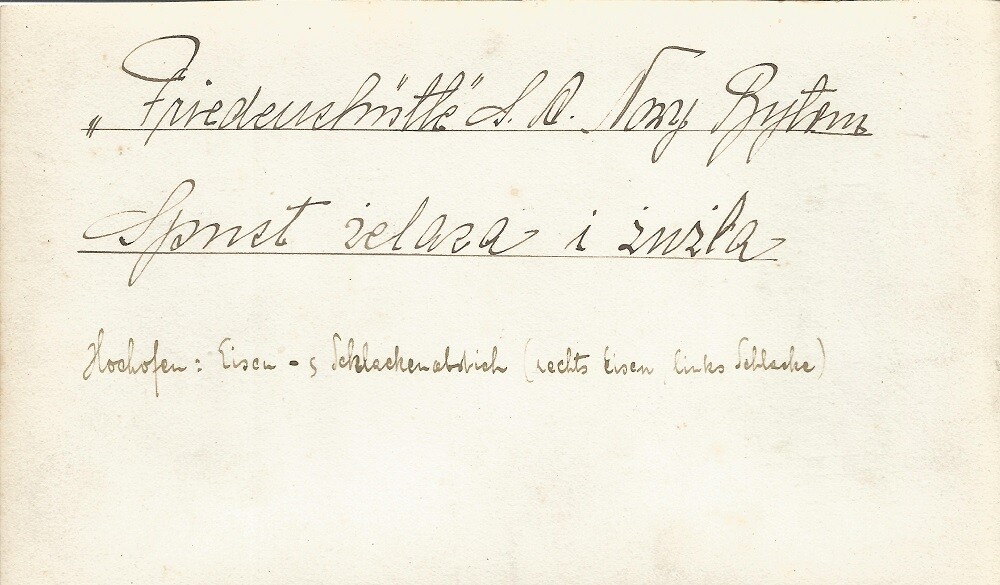 „Friedenshütte" S. A. Nowy Bytom
Spust żelaza i żużla
Hochofen: Eisen - & Schlackenabstich (rechts Eisen, links Schlacke)